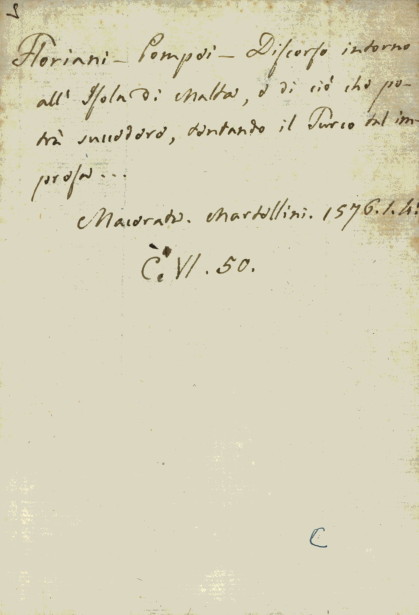 Floriani – Pompei – Discorso intorno
all' Isola di Malta, e di ciò che po-
trà succedere, tentando il Turco tal im-
presa...
Macerata. Martellini. 1576. 1. 4:
C. VI. 50.
C